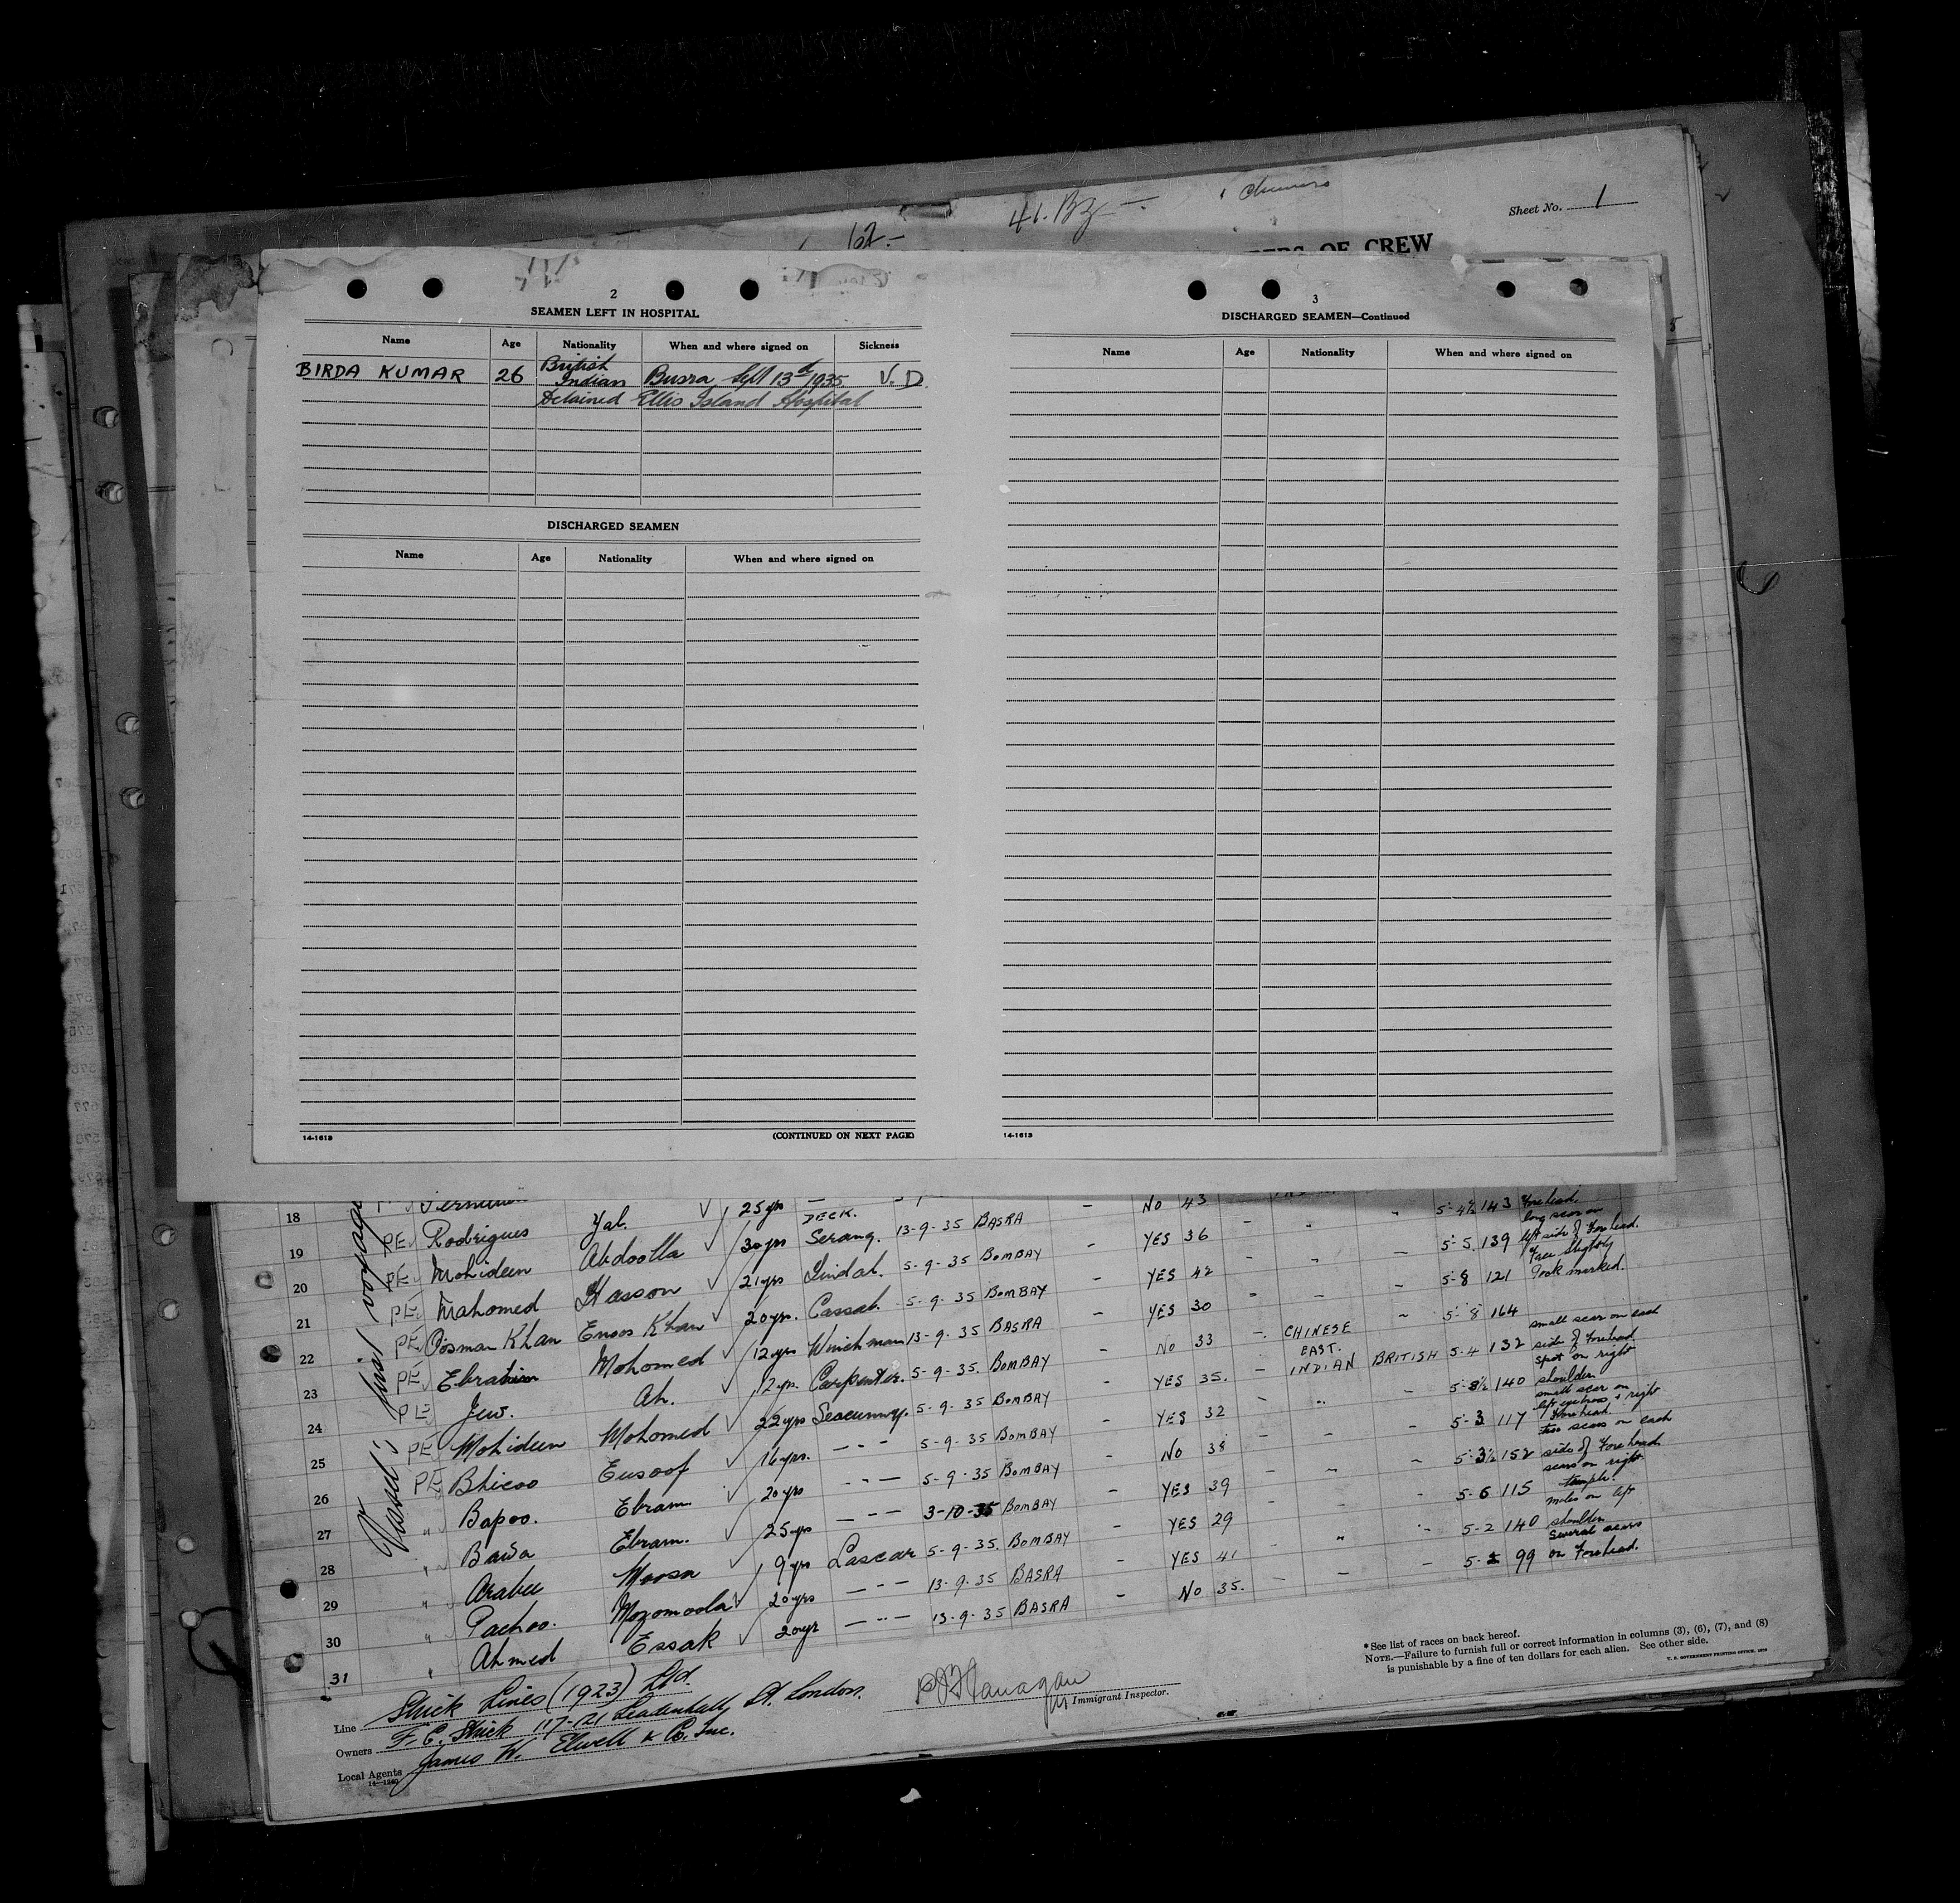 Sheet No. 1
OF CREW
2
SEAMEN LEFT IN HOSPITAL
Name Age Nationality When and where signed on Sickness
BIRDA KUMAR 26 British Indian Busra Sept 13d/1935 V.D.
Detained Ellis Island Hospital
DISCHARGED SEAMEN
Name Age Nationality When and where signed on
14-1613 (CONTINUED ON NEXT PAGE)
3
DISCHARGED SEAMEN—Continued
Name Age Nationality When and where signed on
14-1613
Vessel's first voyage
18 25 yrs DECK. No 43 5-4½ 143 Forehead.
19 PE Rodrigues Yal. 30 yrs Serang. 13-9-35 BASRA - YES 36 - " - 5-5. 139 long scar on left side of Forehead.
20 PE Mohideen Abdoolla 21 yrs 5-9-35 BOMBAY - YES 42 - 5-8 121 Face slightly Pock marked.
21 PE Mahomed Hasson 20 yrs. Cassab. 5-9-35 BOMBAY - YES 30 - 5-8 164
22 PE Oosman Khan Enoos Khan 12 yrs Winchman 13-9-35 BASRA - No 33 -. CHINESE 5-4 132 small scar on each side of Forehead
23 PE Ebrahim Mohomed 12 yrs. Carpenter. 5-9-35. BOMBAY - YES 35. - EAST. INDIAN BRITISH 5-8½ 140 spot on right shoulder
24 PE Jew. Ah. 22 yrs Seacunny. 5-9-35 BOMBAY - YES 32 - " - 5-3 117 small scar on left eyebrow + right Forehead.
25 PE Mohideen Mohomed 16 yrs. - - - 5-9-35 BOMBAY - No 38 - 5-3½ 152 two scars on each side of Forehead
26 PE Bhicoo Eusoof 20 yrs - - - 5-9-35 BOMBAY - YES 39 - 5-6 115 scars on right temple.
27 " Bapoo. Ebram. 25 yrs - - - 3-10-35 BOMBAY - YES 29 5-2 140 moles on left shoulder
28 " Bawa Ebram. 9 yrs Lascar 5-9-35. BOMBAY - YES 41 - " - 99 Several scars on Forehead.
29 " Arabee Moosa 20 yrs - - - 13-9-35 BASRA - No 35. -
30 " Pachoo. Mozomoola 20 yr - - - 13-9-35 BASRA
31 " Ahmed Essak
Line Strick Lines (1923) Ltd.
Owners F. C. Strick 117-121 Leadenhall St. London.
Local Agents James W. Elwell & Co. Inc.
14—1240
Immigrant Inspector.
* See list of races on back hereof.
NOTE.—Failure to furnish full or correct information in columns (3), (6), (7), and (8)
is punishable by a fine of ten dollars for each alien. See other side.
U. S. GOVERNMENT PRINTING OFFICE